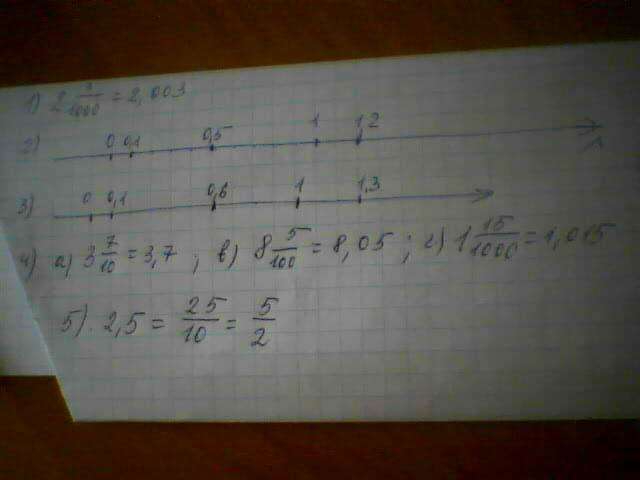 1) 2 3/1000 = 2,003
2) 0 0,1 0,5 1 1,2
3) 0 0,1 0,6 1 1,3
4) а) 3 7/10 = 3,7 ; в) 8 5/100 = 8,05 ; г) 1 15/1000 = 1,015
5). 2,5 = 25/10 = 5/2